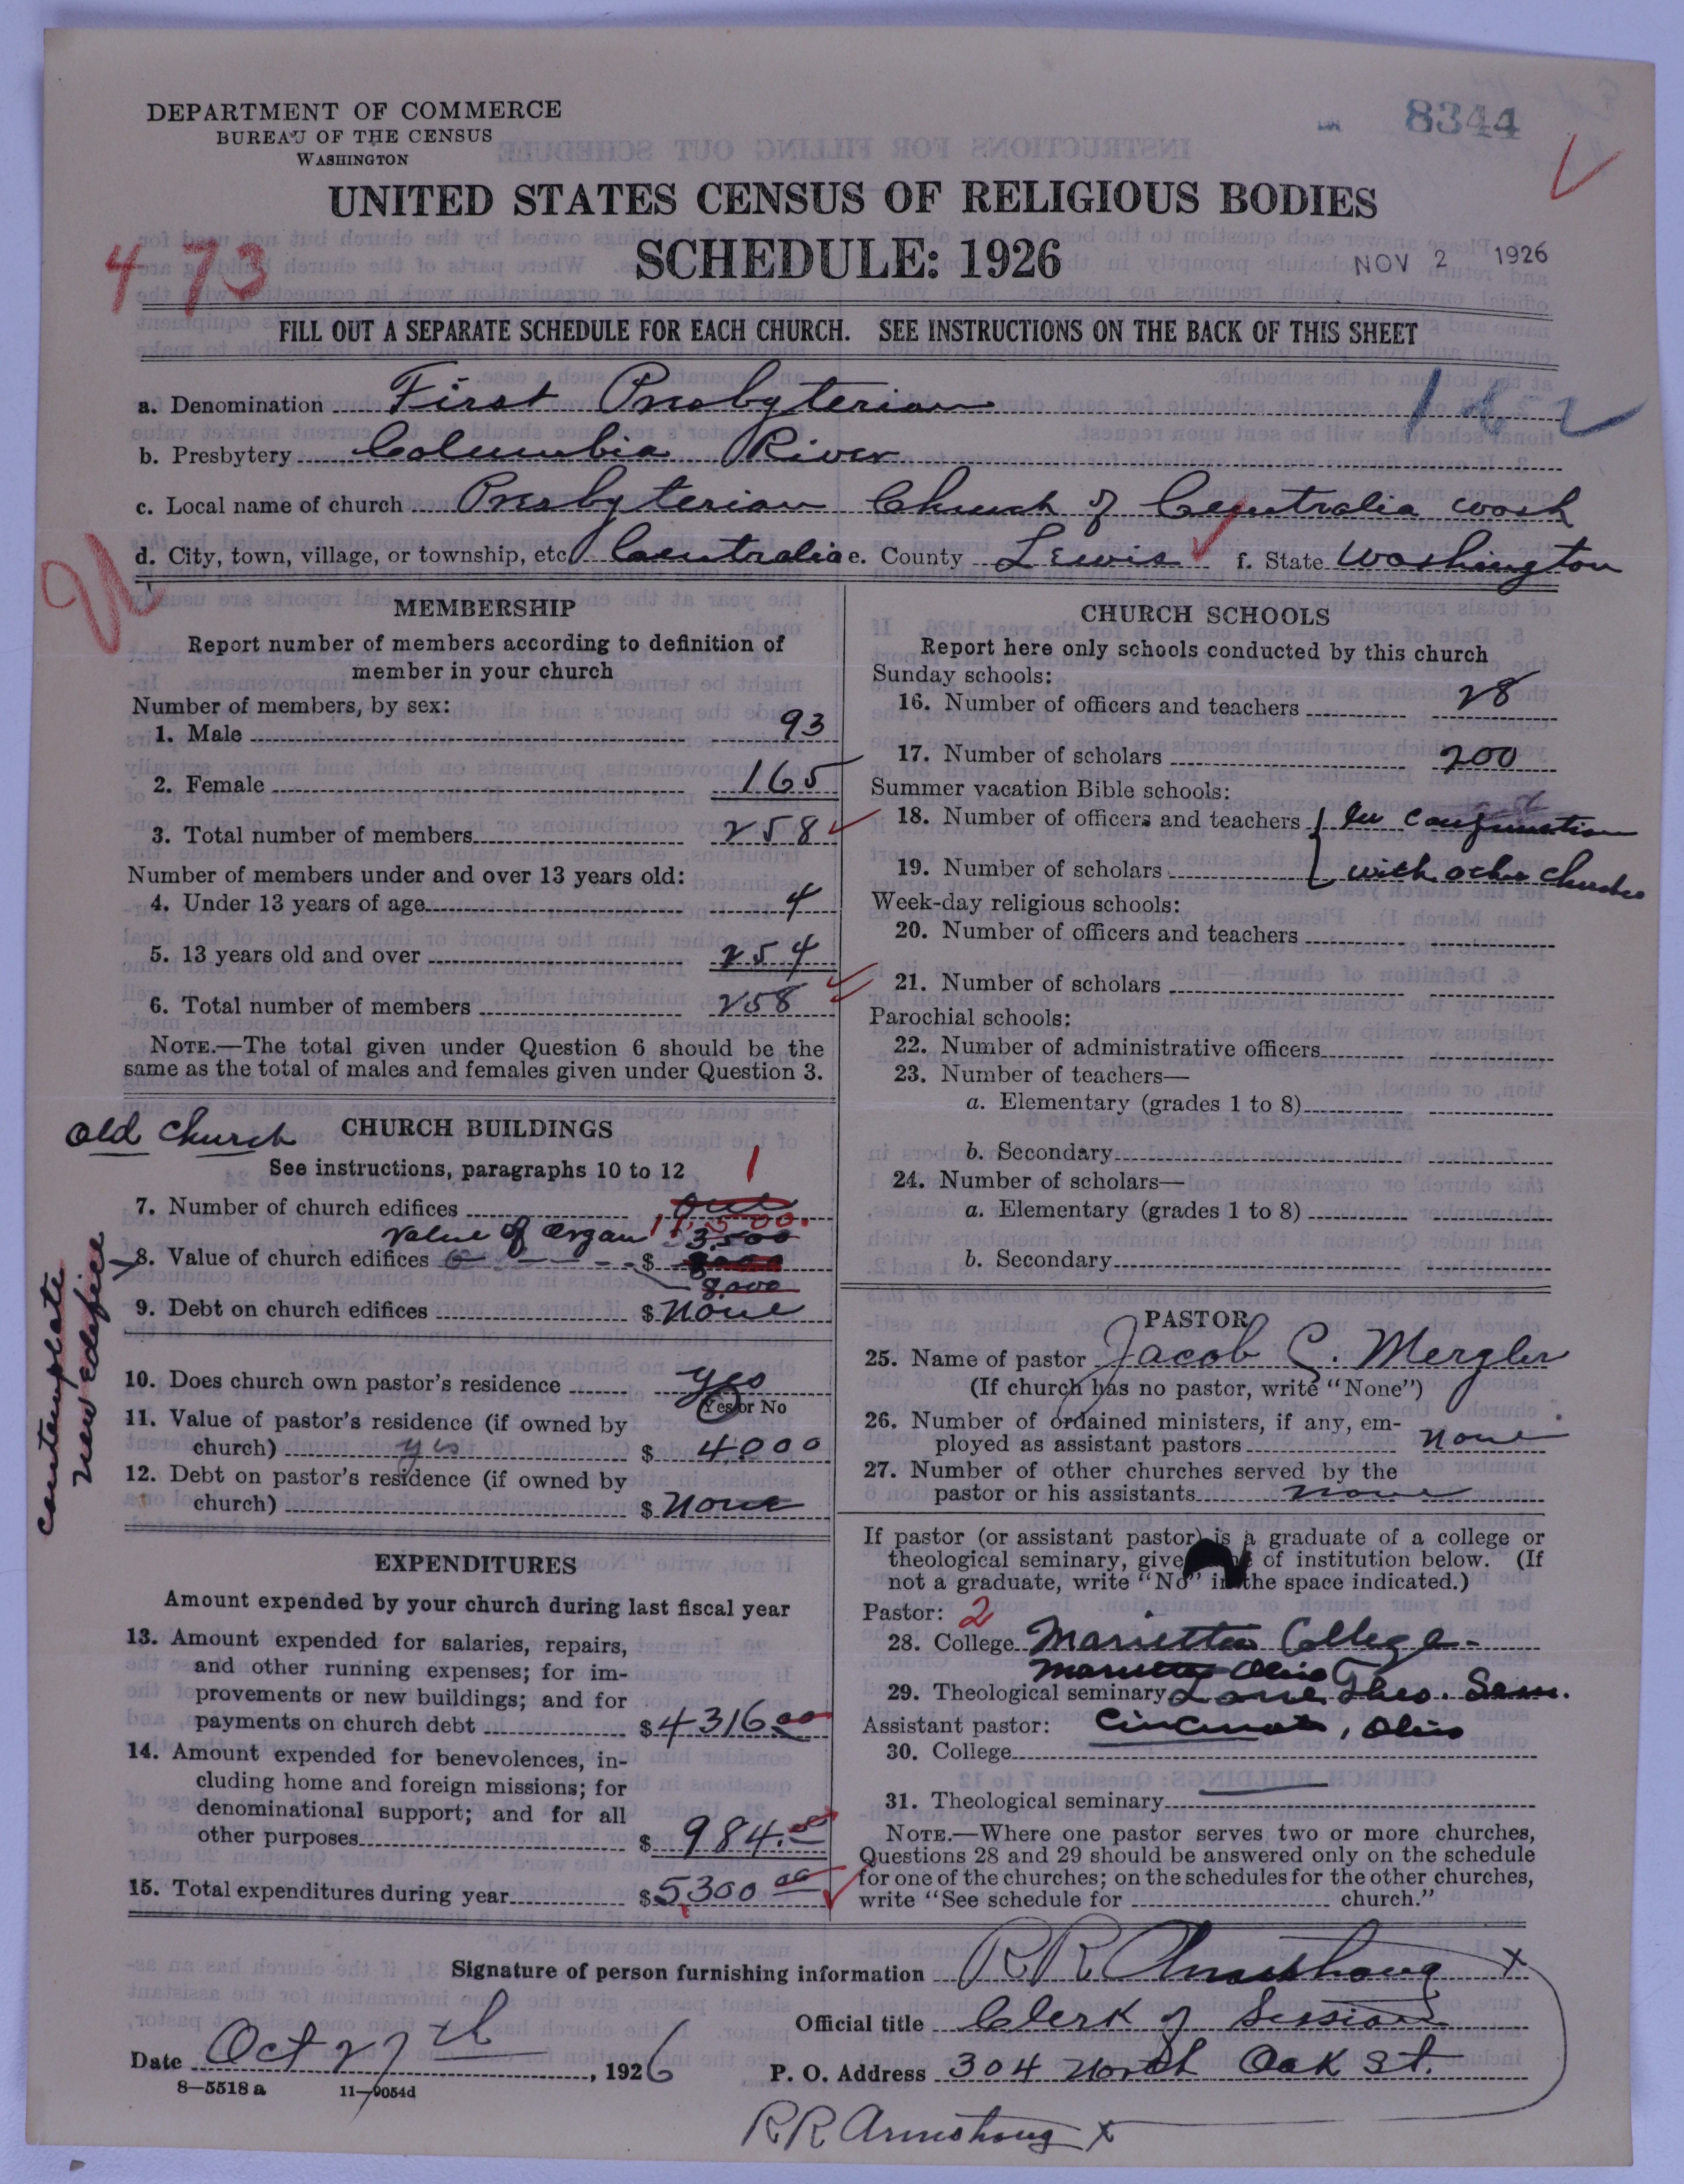 DEPARTMENT OF COMMERCE
BUREAU OF THE CENSUS
WASHINGTON
8344
UNITED STATES CENSUS OF RELIGIOUS BODIES
SCHEDULE: 1926
NOV 2 1926
473
FILL OUT A SEPARATE SCHEDULE FOR EACH CHURCH. SEE INSTRUCTIONS ON THE BACK OF THIS SHEET
a. Denomination First Presbyterian 162
b. Presbytery Columbia River
c. Local name of church Presbyterian Church of Centralia Wash
d. City, town, village, or township, etc. Centralia e. County Lewis f. State Washington
MEMBERSHIP
Report number of members according to definition of
member in your church
Number of members, by sex:
1. Male 93
2. Female 165
3. Total number of members 258
Number of members under and over 13 years old:
4. Under 13 years of age 4
5. 13 years old and over 254
6. Total number of members 258
NOTE.—The total given under Question 6 should be the
same as the total of males and females given under Question 3.
old church
CHURCH BUILDINGS
See instructions, paragraphs 10 to 12
1
7. Number of church edifices one
11,500.
Value of organ 3,500
8. Value of church edifices $
8,000
9. Debt on church edifices $ None
contemplate
new edifice
10. Does church own pastor's residence yes
Yes or No
11. Value of pastor's residence (if owned by
church) yes $ 4000
12. Debt on pastor's residence (if owned by
church) $ None
EXPENDITURES
Amount expended by your church during last fiscal year
13. Amount expended for salaries, repairs,
and other running expenses; for im-
provements or new buildings; and for
payments on church debt $ 4316.00
14. Amount expended for benevolences, in-
cluding home and foreign missions; for
denominational support; and for all
other purposes $ 984.00
15. Total expenditures during year $ 5300.00
CHURCH SCHOOLS
Report here only schools conducted by this church
Sunday schools:
16. Number of officers and teachers 28
17. Number of scholars 200
Summer vacation Bible schools:
18. Number of officers and teachers In conjunction
19. Number of scholars with other churches
Week-day religious schools:
20. Number of officers and teachers
21. Number of scholars
Parochial schools:
22. Number of administrative officers
23. Number of teachers—
a. Elementary (grades 1 to 8)
b. Secondary
24. Number of scholars—
a. Elementary (grades 1 to 8)
b. Secondary
PASTOR
25. Name of pastor Jacob C. Mergler
(If church has no pastor, write "None")
26. Number of ordained ministers, if any, em-
ployed as assistant pastors None
27. Number of other churches served by the
pastor or his assistants None
If pastor (or assistant pastor) is a graduate of a college or
theological seminary, give of institution below. (If
not a graduate, write "No" in the space indicated.)
Pastor: 2
28. College Marietta College.
Marietta Ohio
29. Theological seminary Lane Theo. Sem.
Assistant pastor: Cincinnati, Ohio
30. College
31. Theological seminary
NOTE.—Where one pastor serves two or more churches,
Questions 28 and 29 should be answered only on the schedule
for one of the churches; on the schedules for the other churches,
write "See schedule for church."
Signature of person furnishing information R R Armstrong x
Official title Clerk of Session
Date Oct 27th, 1926
P. O. Address 304 North Oak St.
8—5518a 11—9054d
R R Armstrong x